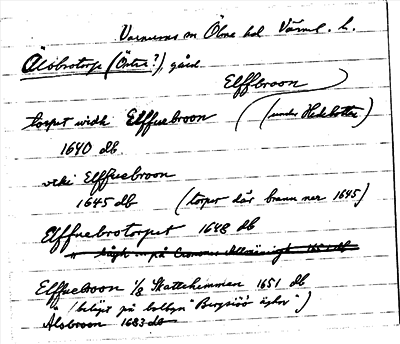 Varnums sn Ölme hd Värml. l.
Älvbrotorp (Östra?), gård.
Elffbroon
torpet widh Elffuebroon (under Hedebotter)
1640 db.
vidh Elffuebroon
1645 db (torpet där brann ner 1645)
Elffuebrotorpet 1648 db
på Cronones 1651 db
Elffuebroon 1/8 Skattehemman 1651 db
(beläget på bolbyn "Bergsiöö äghor")
Alsbroon 1683 db